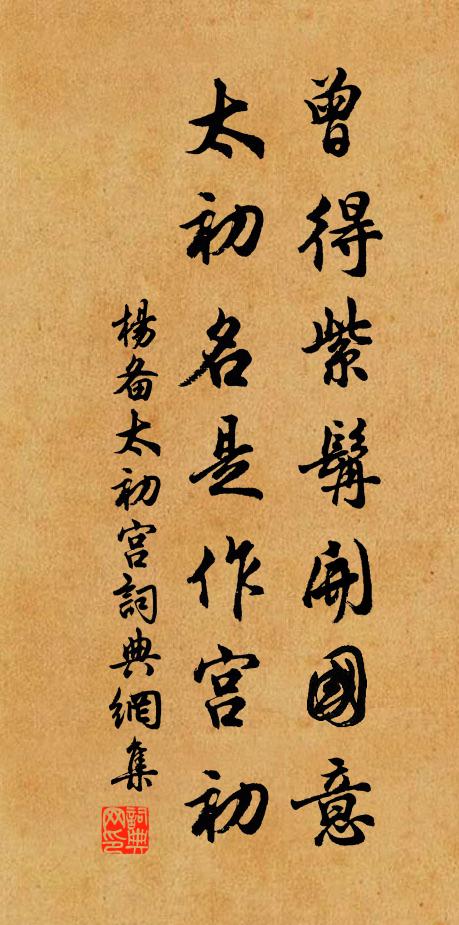 曾得紫髯開國意
太初名是作宮初
楊备太初宮詞典網集
詞典网印